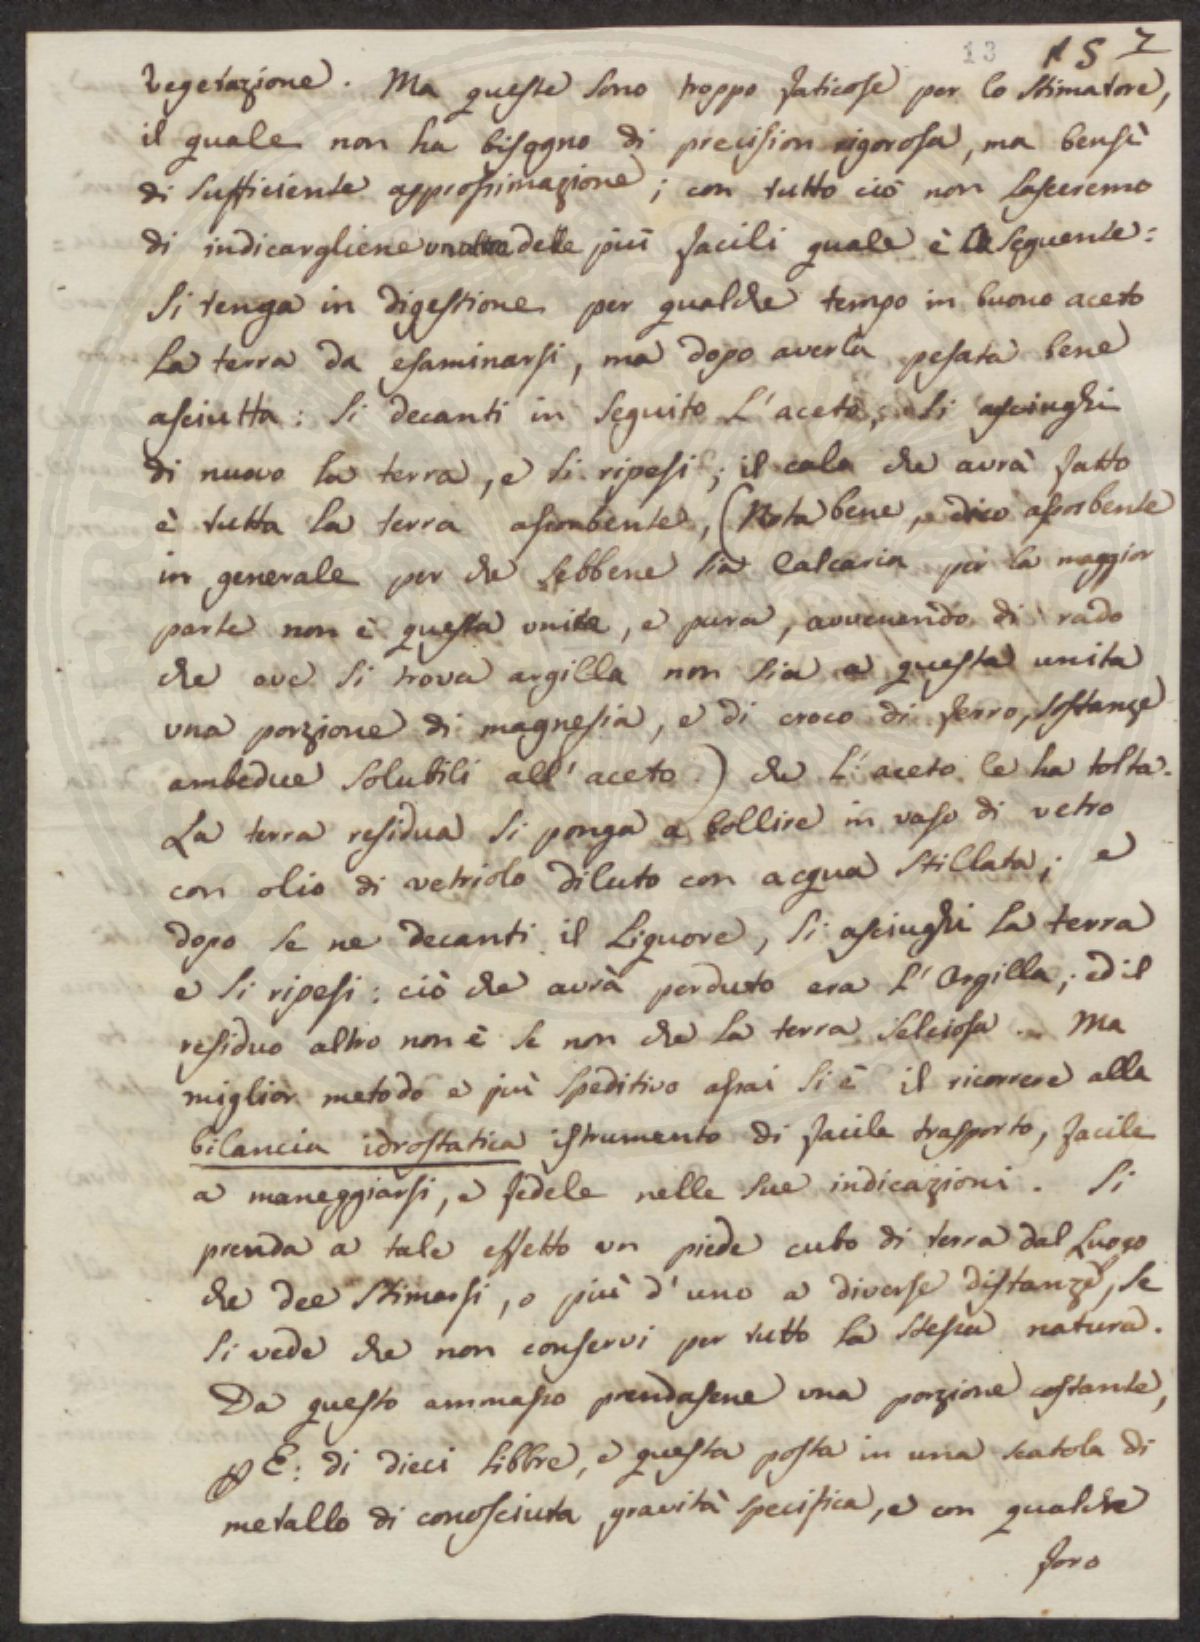 13 157
vegetazione. Ma queste sono troppo faticose per lo stimatore,
il quale non ha bisogno di precision rigorosa, ma bensì
di sufficiente approssimazione; con tutto ciò non lasceremo
di indicargliene una delle più facili quale è la seguente:
Si tenga in digestione per qualche tempo in buono aceto
la terra da esaminarsi, ma dopo averla pesata bene
asciutta: si decanti in seguito l'aceto, si asciughi
di nuovo la terra, e si ripesi; il calo che avrà fatto
è tutta la terra assorbente, (Nota bene, dico assorbente
in generale per che sebbene sia calcaria per la maggior
parte non è questa unita, e pura, avvenendo di rado
che ove si trova argilla non sia a questa unita
una porzione di magnesia, e di croco di ferro, sostanze
ambedue solubili all'aceto.) che l'aceto le ha tolta.
La terra residua si ponga a bollire in vaso di vetro
con olio di vetriolo diluto con acqua stillata; e
dopo se ne decanti il liquore, si asciughi la terra
e si ripesi: ciò che avrà perduto era l'Argilla; ed il
residuo altro non è se non che la terra selciosa. Ma
miglior metodo e più speditivo assai si è il ricorrere alla
bilancia idrostatica istrumento di facile trasporto, facile
a maneggiarsi, e fedele nelle sue indicazioni. Si
prenda a tale effetto un piede cubo di terra dal luogo
che dee stimarsi, o più d'uno a diverse distanze, se
si vede che non conservi per tutto la stessa natura.
Da questo ammasso prendasene una porzione costante,
p E: di dieci libbre, e questa posta in una scatola di
metallo di conosciuta gravità specifica, e con qualche
foro